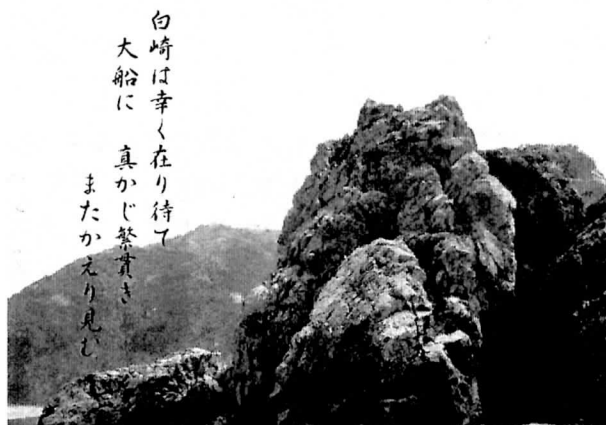 白崎は幸く在り待て
大船に 真かじ繁貫き
またかえり見む